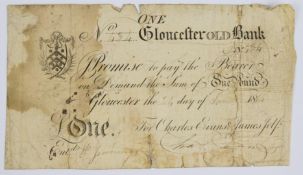 ONE
No Gloucester OLD Bank
Promise to pay the Bearer
on Demand the Sum of One Pound
Gloucester the day of 18
£ One. For Charles Evans & James Jelf